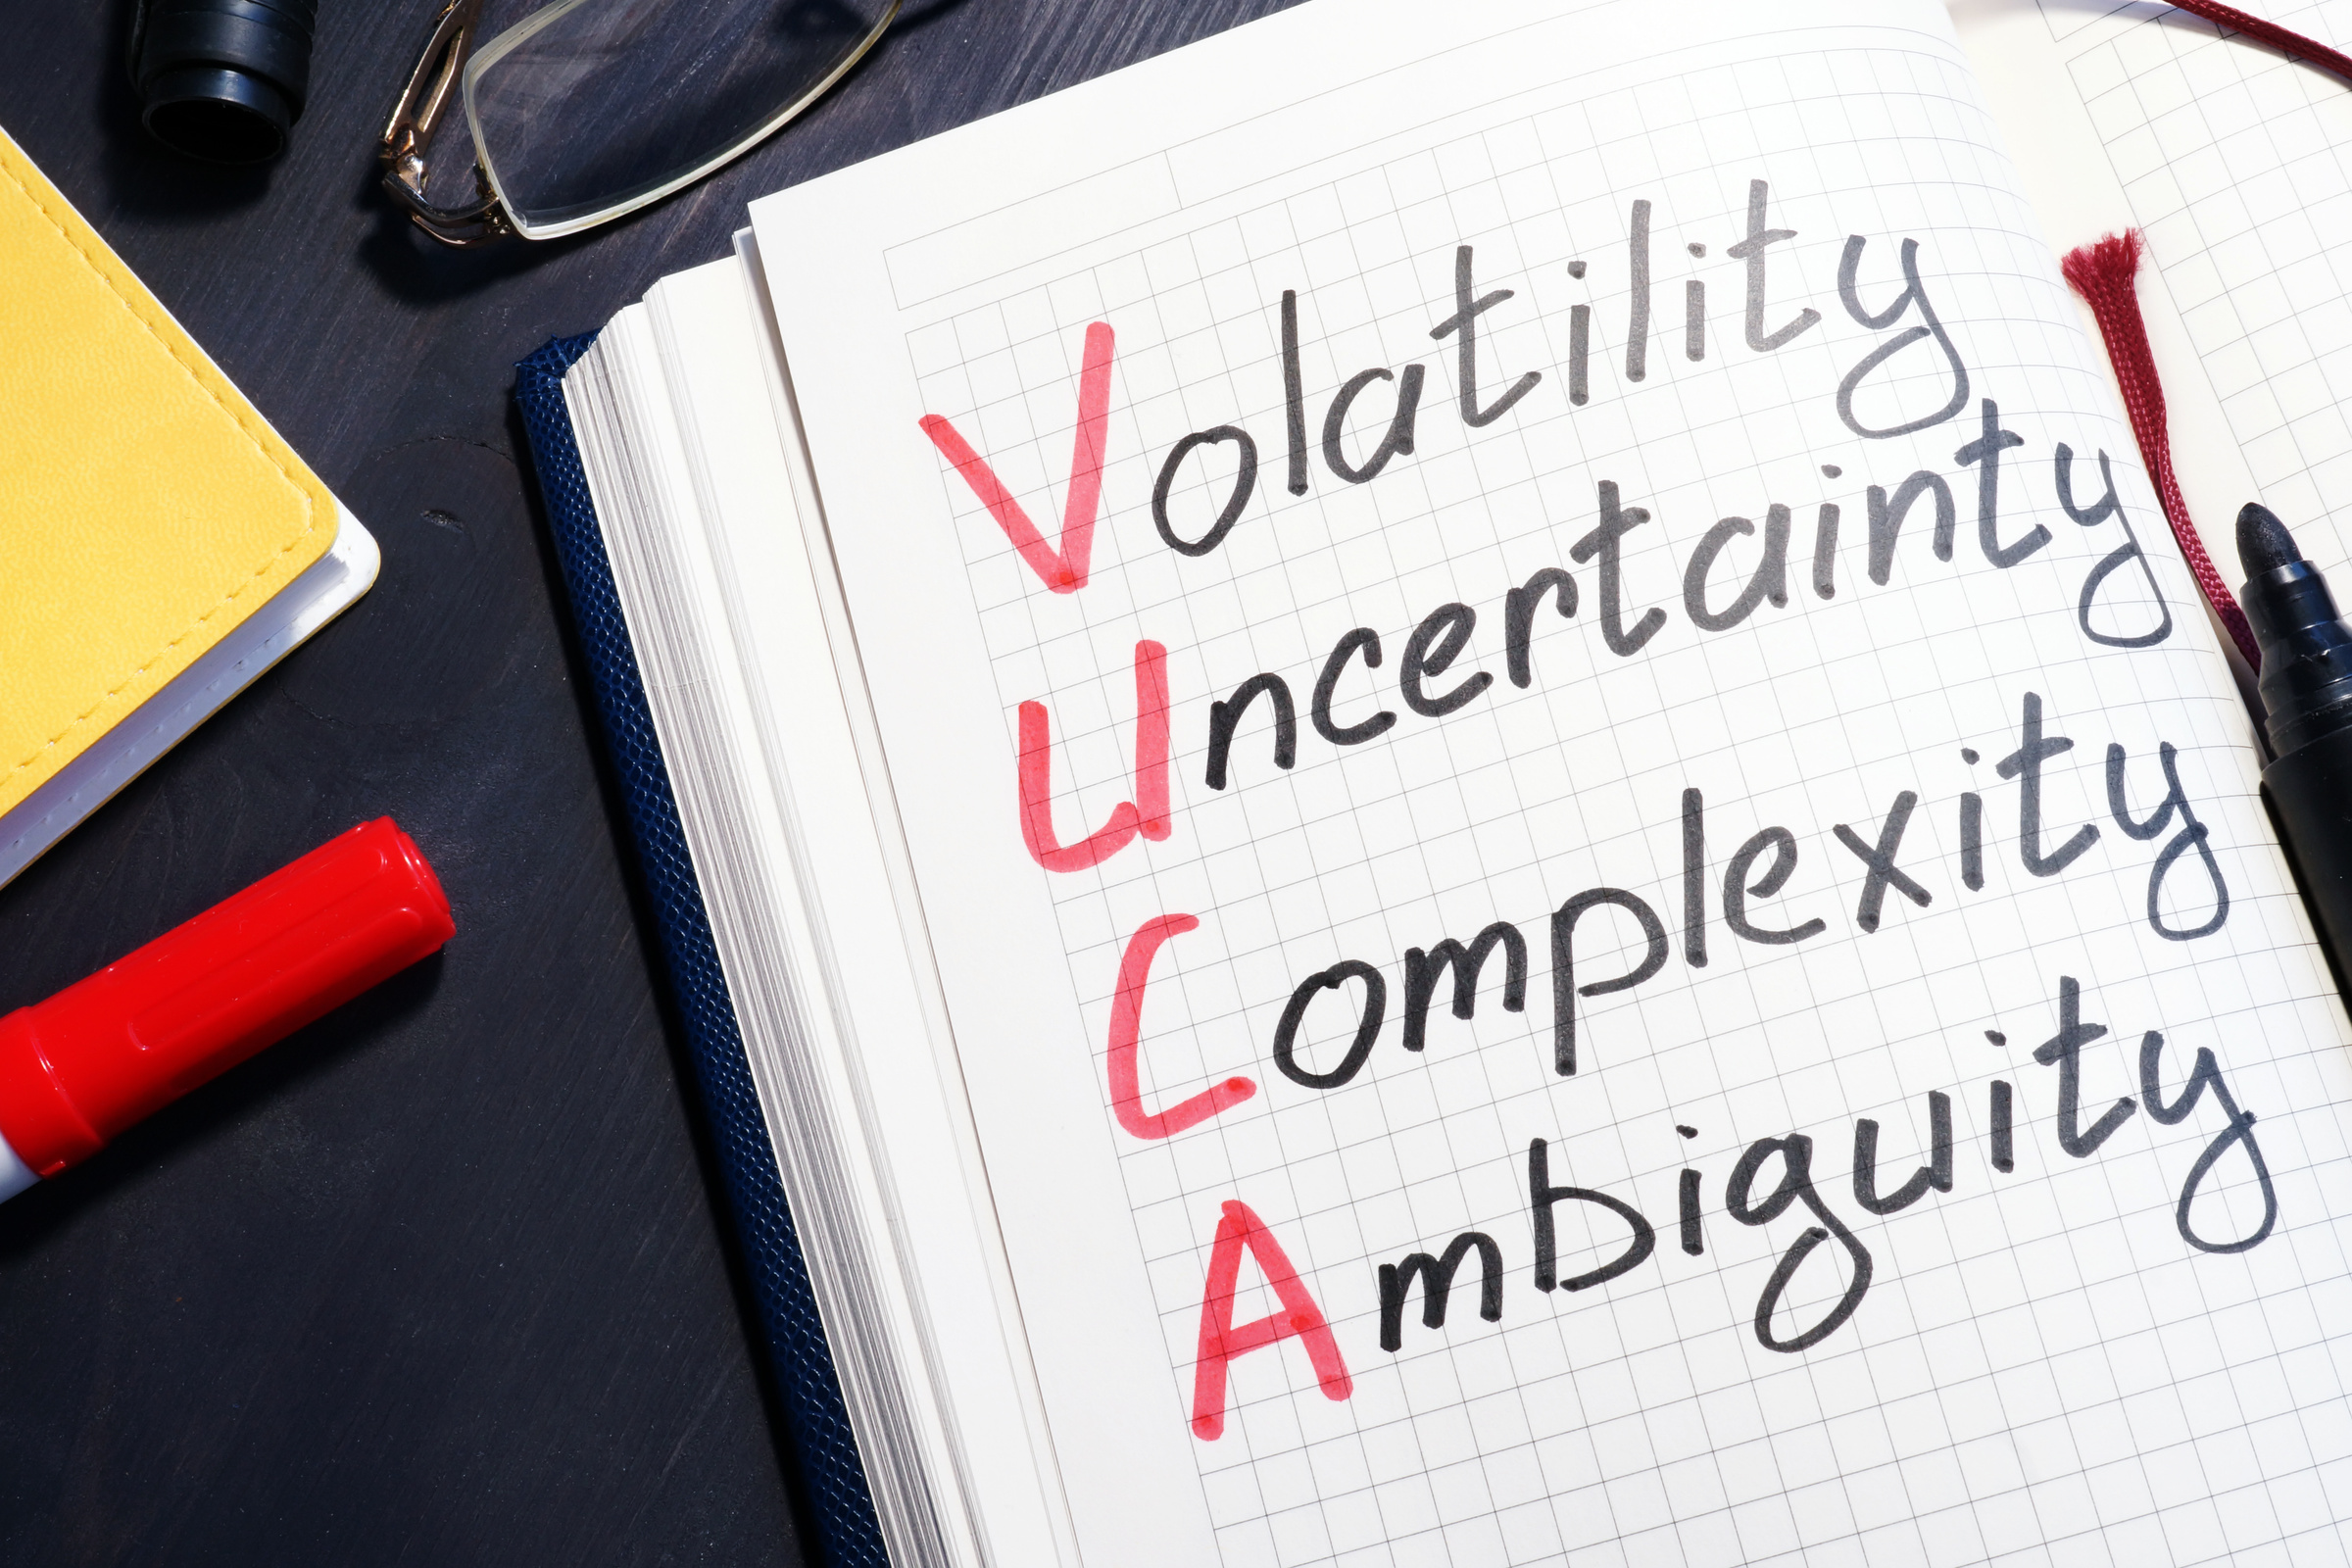 Volatility
Uncertainty
Complexity
Ambiguity